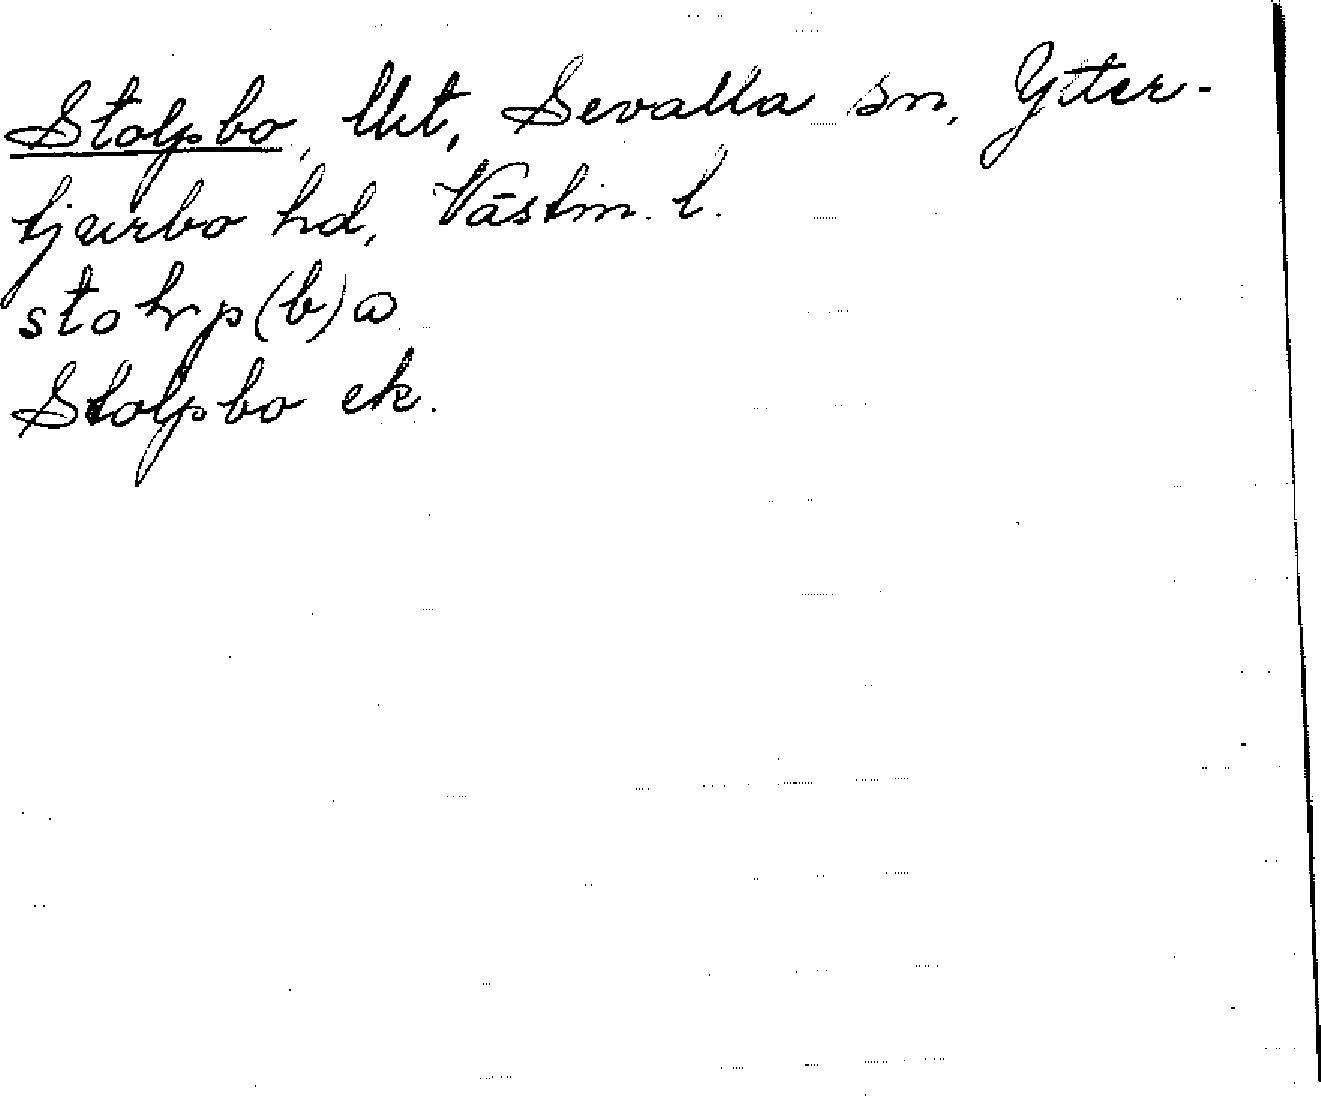 Stolpbo, lht, Sevalla sn, Ytter-
tjurbo hd, Västm. l.
stohrp(b)ω
Stolpbo ek.